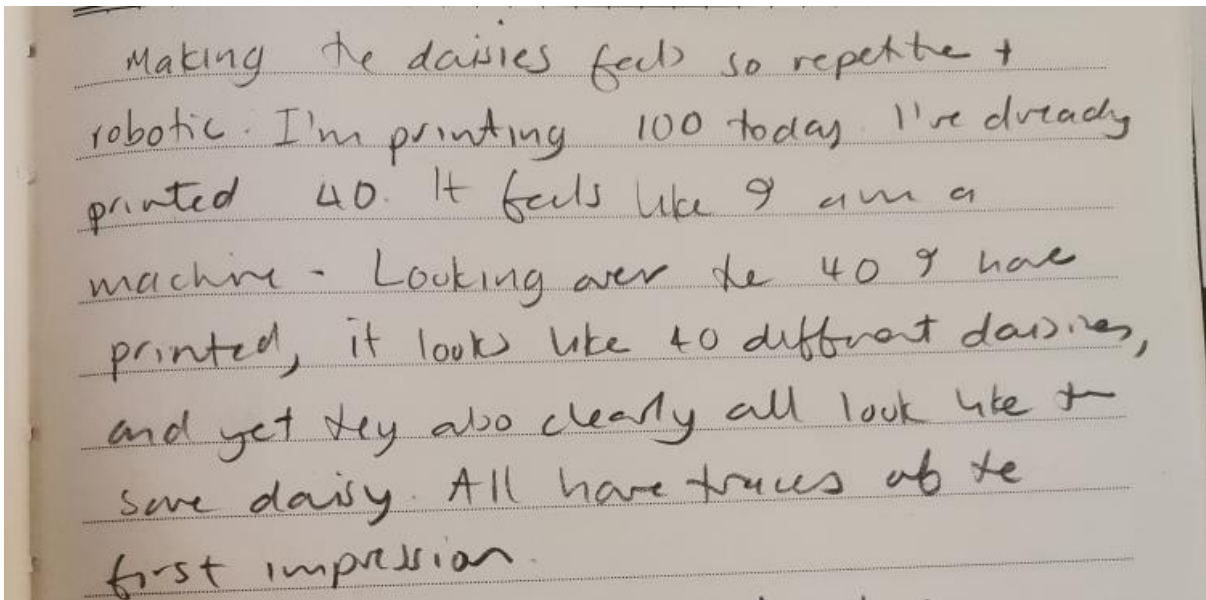 Making the daisies feels so repetitive +
robotic. I'm printing 100 today. I've already
printed 40. It feels like I am a
machine - Looking over the 40 I have
printed, it looks like 40 different daisies,
and yet they also clearly all look like the
same daisy. All have traces of the
first impression.